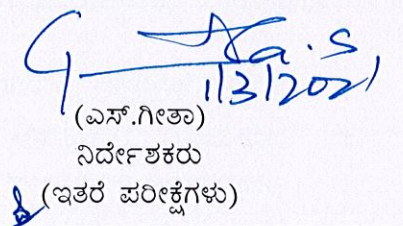 1/3/2021
(ಎಸ್.ಗೀತಾ)
ನಿರ್ದೇಶಕರು
(ಇತರೆ ಪರೀಕ್ಷೆಗಳು)